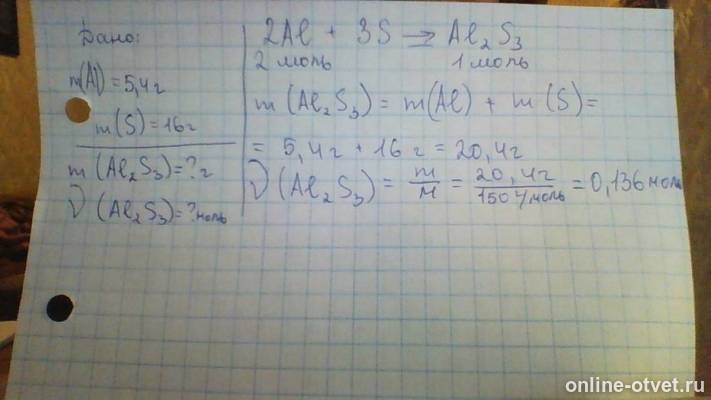 Дано:
m(Al) = 5,4г
m(S) = 16г
m(Al₂S₃)=?г
ν(Al₂S₃)=?моль
2Al + 3S → Al₂S₃
2 моль 1 моль
m(Al₂S₃) = m(Al) + m(S)=
= 5,4г + 16г = 20,4г
ν(Al₂S₃) = m/M = 20,4г/150г/моль = 0,136моль
online-otvet.ru